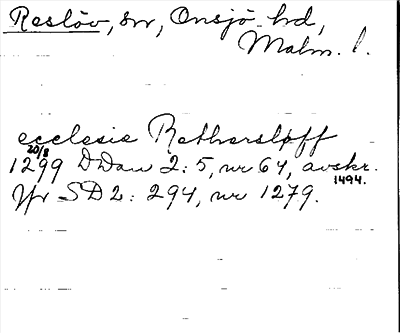 Reslöv, sn, Onsjö hd,
Malm. l.
ecclesie Rethersløff
20/8
1299 DDan 2:5, nr 64, avskr.
1494.
Jfr SD 2: 294, nr 1279.